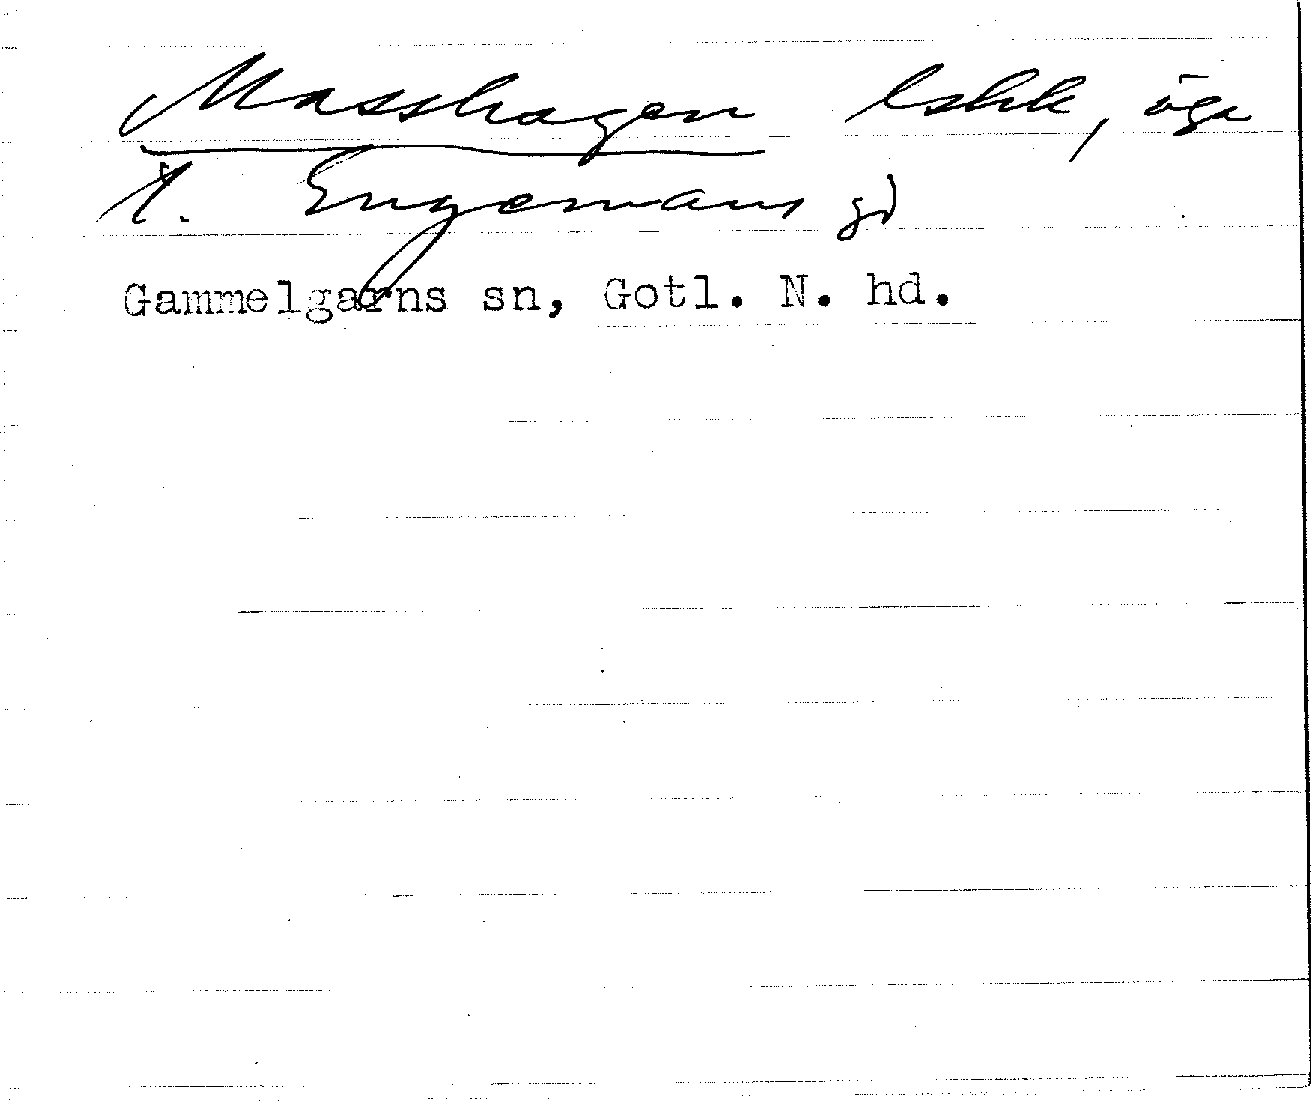 Masshagen lshk, äga
t. Engemans gd
Gammelgarns sn, Gotl. N. hd.